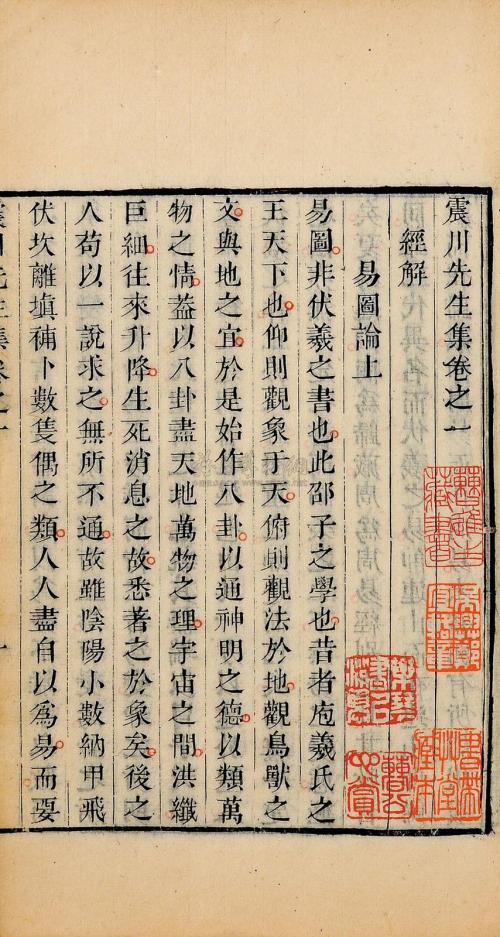 震川先生集卷之一
經解
易圖論上
易圖非伏羲之書也此邵子之學也昔者庖羲氏之
王天下也仰則觀象于天俯則觀法於地觀鳥獸之
文與地之宜於是始作八卦以通神明之德以類萬
物之情葢以八卦盡天地萬物之理宇宙之間洪纖
巨細往來升降生死消息之故悉著之於象矣後之
人苟以一說求之無所不通故雖陰陽小數納甲飛
伏坎離塡補卜數隻偶之類人人盡自以爲易而要